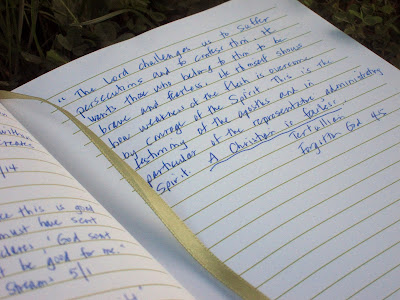 with
creates
/14
ce this is give
must have sent
clares, "God sent
t be good for me."
Streams 5/1
"The Lord challenges us to suffer
persecutions and to confess Him. He
wants those who belong to Him to be
brave and fearless. He Himself shows
how weakness of the flesh is overcome
by courage of the Spirit. This is the
testimony of the apostles and in
particular of the representative, administrating
Spirit. A Christian is fearless."
Tertullian
Forgotten God 45